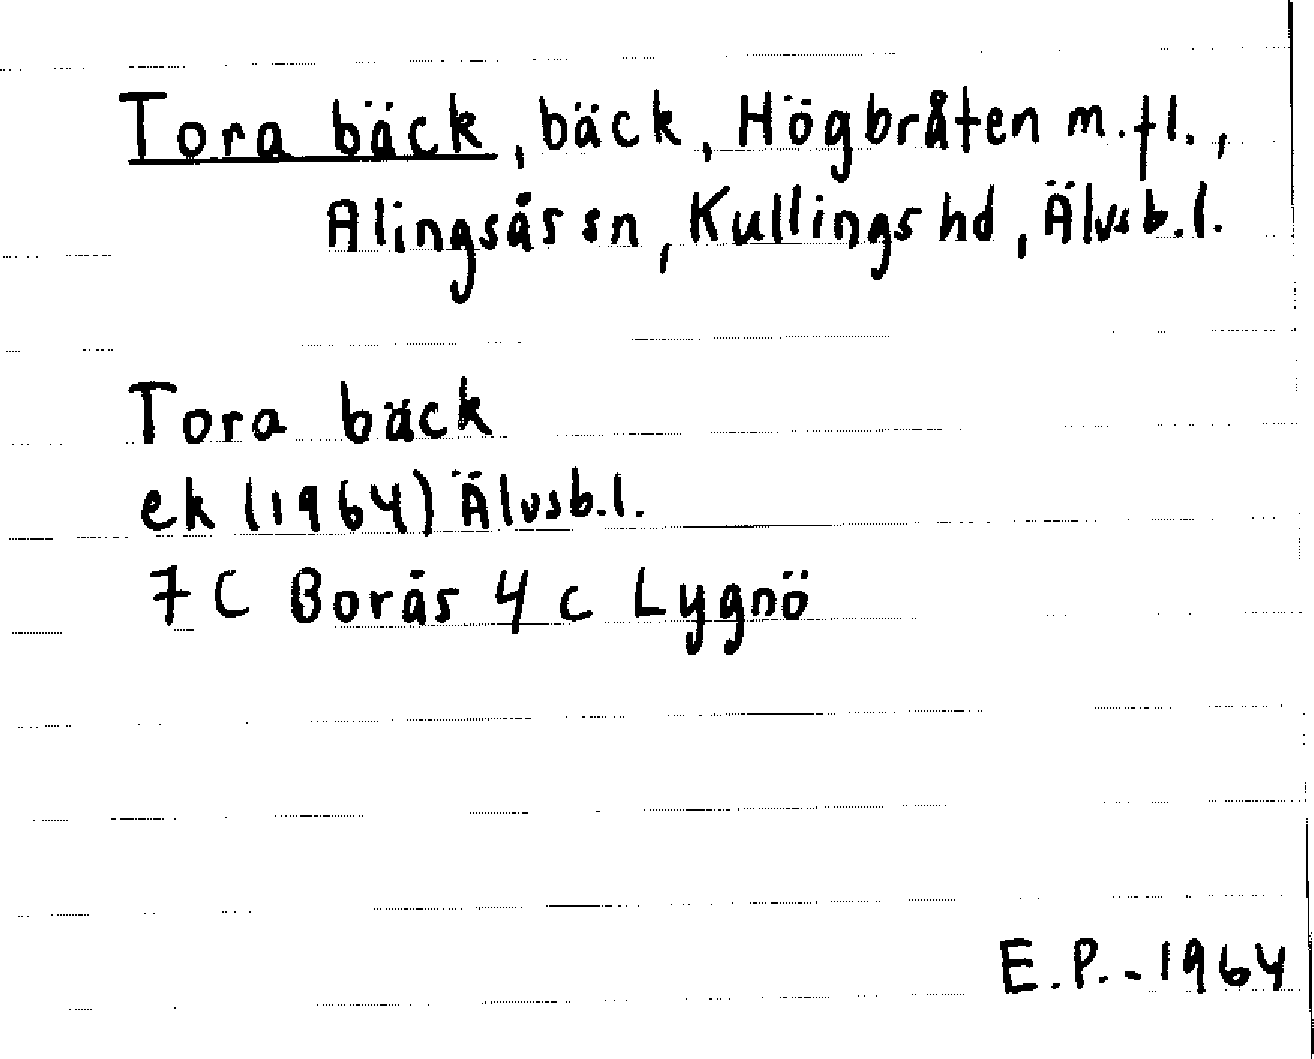 Tora bäck, bäck, Högbråten m.fl.,
Alingsås sn, Kullings hd, Älvsb.l.
Tora bäck
ek (1964) Älvsb.l.
7 C Borås 4 c Lygnö
E.P.-1964